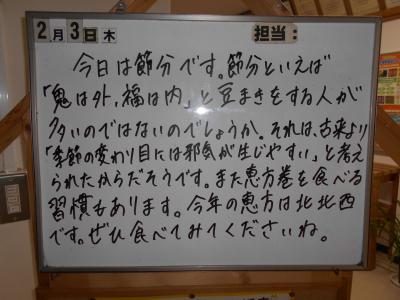 2月3日木 担当:
今日は節分です。節分といえば
「鬼は外,福は内」と豆まきをする人が
多いのではないのでしょうか。それは、古来より
「季節の変わり目には邪気が生じやすい」と考え
られたからだそうです。また恵方巻を食べる
習慣もあります。今年の恵方は北北西
です。ぜひ食べてみてくださいね。